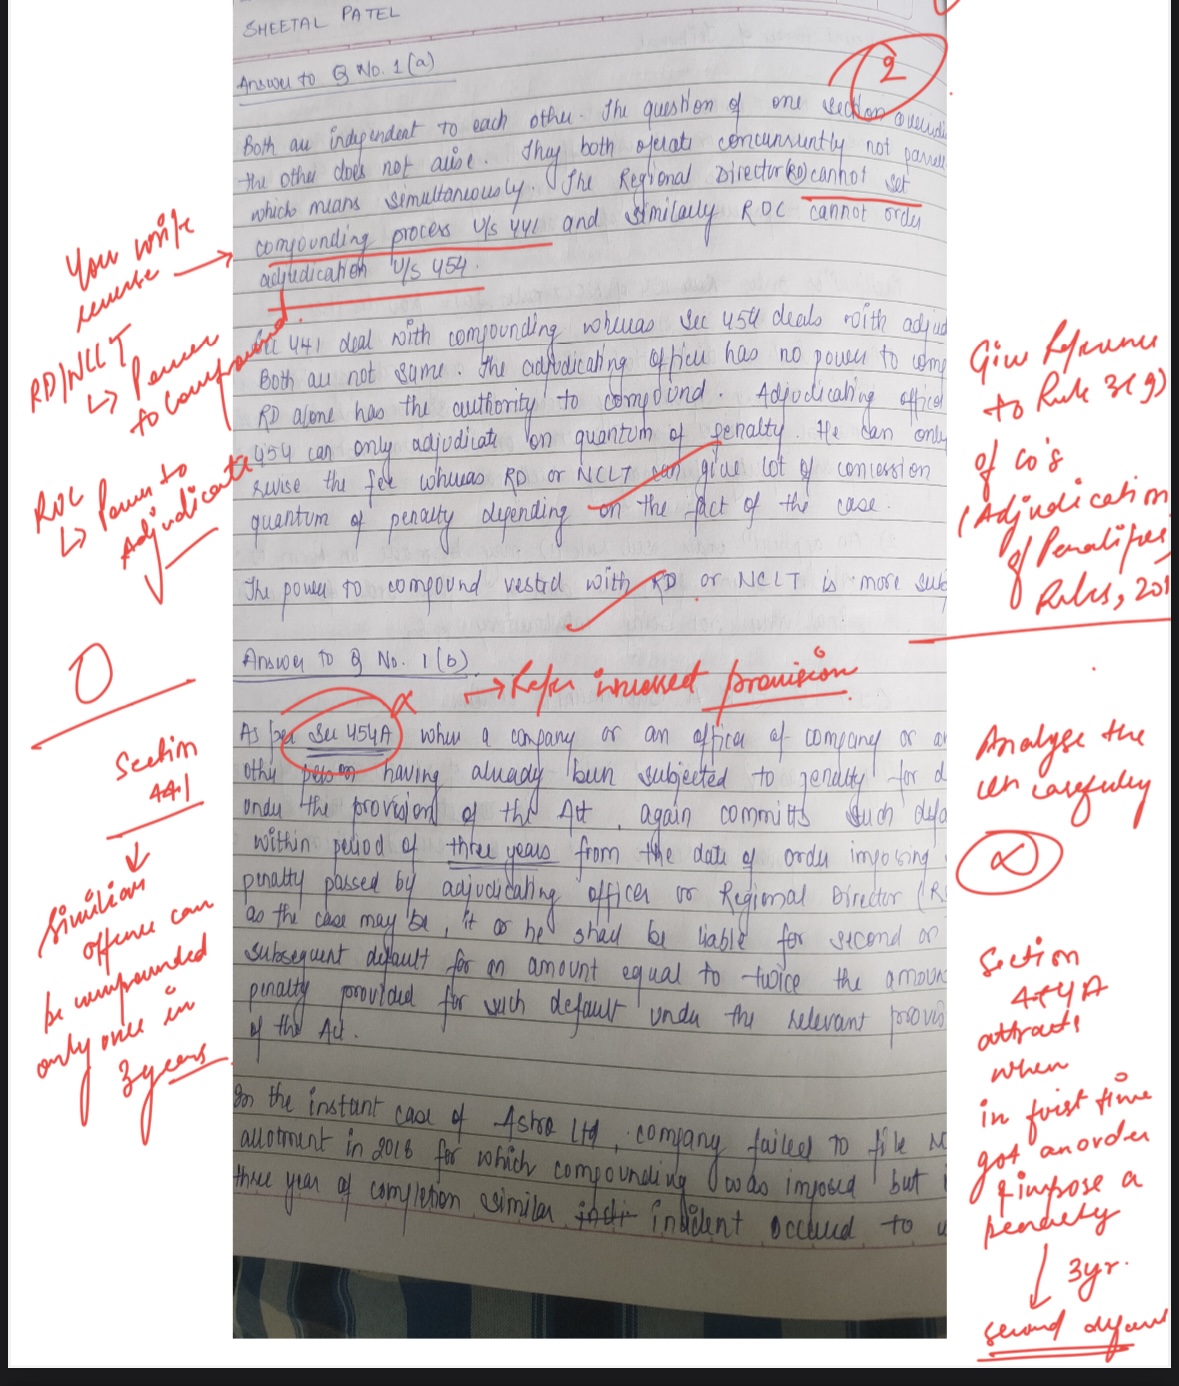 SHEETAL PATEL
2
Answer to Q No. 1(a)
Both are independent to each other. The question of one section
the other does not arise. They both operate concurrently not
which means simultaneously. The Regional Director(RD) cannot set
compounding process u/s 441 and similarly ROC cannot order
adjudication u/s 454.
You write
reverse
RD/NCLT
↳ Power
to compound.
ROC
↳ Power to
Adjudicate
Sec 441 deal with compounding whereas Sec 454 deals with adjud
Both are not same. The adjudicating officer has no power to comp
RD alone has the authority to compound. Adjudicating officer
454 can only adjudicate on quantum of penalty. He can only
revise the fee whereas RD or NCLT can give lot of concession
quantum of penalty depending on the fact of the case.
The power to compound vested with RD or NCLT is more sub
Give Reference
to Rule 3(9)
of Co's
(Adjudication
of Penalties
Rules, 201
Answer to Q No. 1(b)
→ Refer incorrect provision
0
Section
441
↓
Similar
offence can
be compounded
only once in
3 years
As per Sec 454A when a company or an officer of company or an
other person having already been subjected to penalty for d
under the provision of the Act, again committs such defa
within period of three years from the date of order imposing
penalty passed by adjudicating officer or Regional Director (R
as the case may be, it or he shall be liable for second or
subsequent default for an amount equal to twice the amoun
penalty provided for such default under the relevant provis
of the Act.
In the instant case of Astra Ltd, company failed to file
allotment in 2018 for which compounding was imposed but
three year of completion similar incident occured to
Analyse the
carefully
α
Section
454A
attracts
when
in first time
got an order
impose a
penalty
↓ 3yr.
second defau